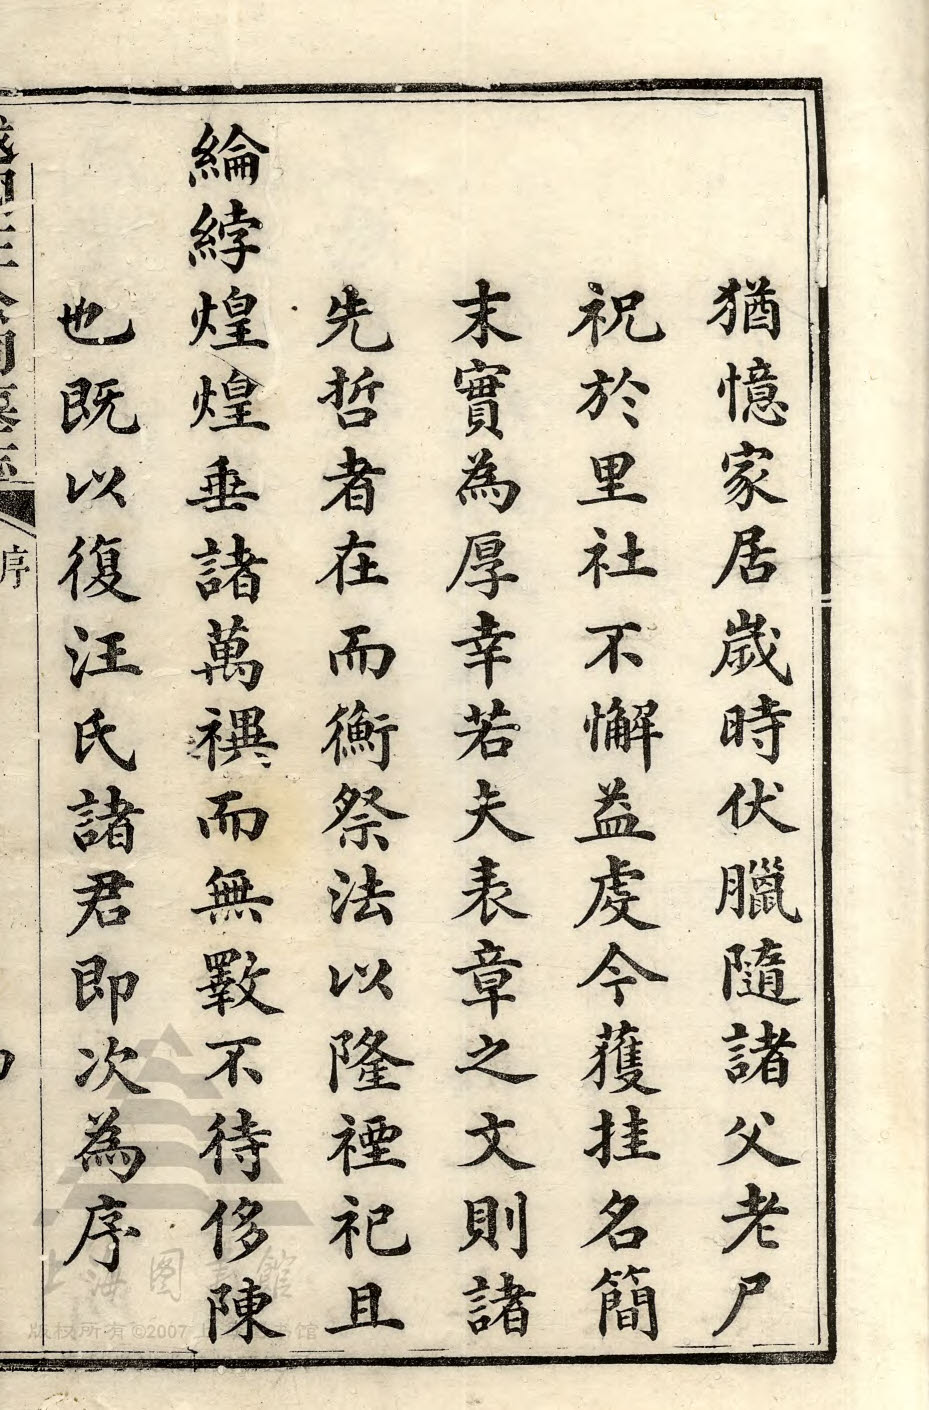 猶憶家居歲時伏臘隨諸父老尸
祝於里社不懈益虔今獲挂名簡
末實為厚幸若夫表章之文則諸
先哲者在而衡祭法以隆禋祀且
綸綍煌煌垂諸萬禩而無斁不待侈陳
也既以復汪氏諸君即次為序
序
上海图书馆
版权所有©2007上海图书馆